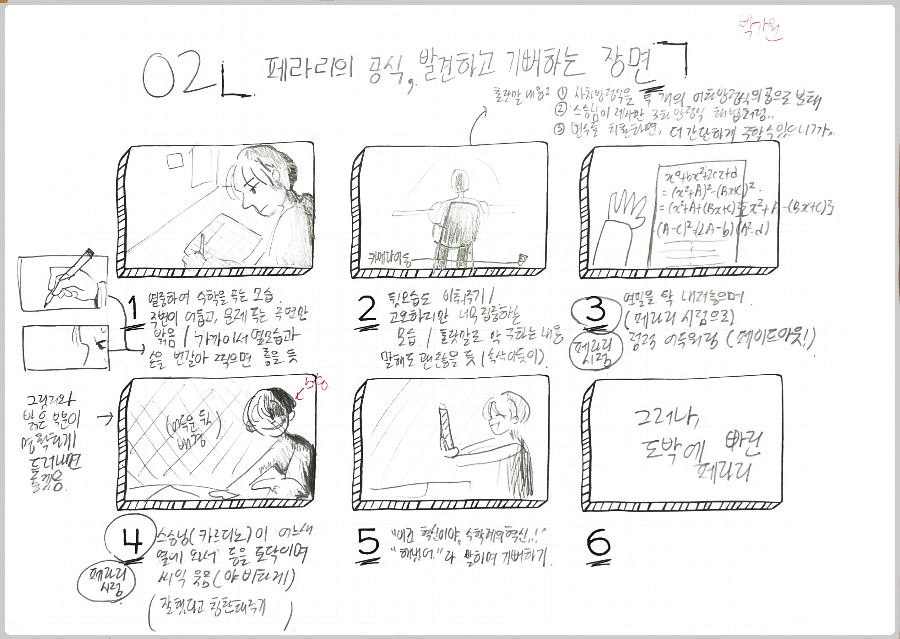 박가원
02 페라리의 공식, 발견하고 기뻐하는 장면
① 사차방정식을 두 개의 이차방정식의 곱으로 보내
② 스승님이 제시한 3차방정식 해법처럼..
③ 변수를 치환하면, 더 간단하게 구할 수 있으니까..
카메라이동
x⁴+bx²+2cx+d
= (x²+A)²-(Bx+C)².
= (x²+A+(Bx+C)}{x²+A-(Bx+C)}
1
열중하여 수학을 푸는 모습.
주변이 어둡고, 문제 푸는 주변만
밝음 / 가까이서 옆모습과
손을 번갈아 찍으면 좋을 듯
2
뒷모습도 비춰주기 /
고요하지만 너무 집중하는
모습 / 혼잣말로 막 구하는 내용
말해도 괜찮을 듯 (속삭이듯이)
3
페라리
시점
연필을 탁 내려놓으며
(페라리 시점으로)
점점 어두워짐 (페이드아웃!)
그림자와
밝은 부분이
명확하게
드러나면
좋겠음.
(어두운
배경)
그러나,
도박에 빠진
페라리
4
페라리
시점
스승님(카르다노)이 어느새
옆에 와서 등을 토닥이며
씨익 웃음 (야비하게)
(잘했다고 칭찬해주기)
5
"이건 혁신이야, 수학계의 혁신..!"
"해냈어"라 말하며 기뻐하기.
6